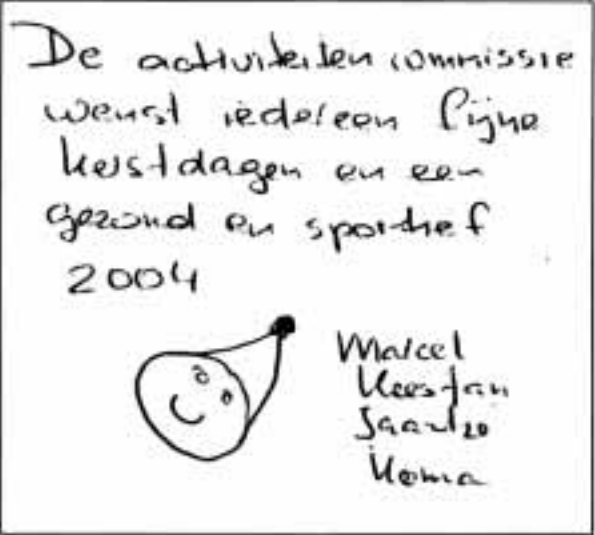 De activiteiten commissie
wenst iedereen fijne
kerstdagen en een
gezond en sportief
2004
Marcel
Keesjan